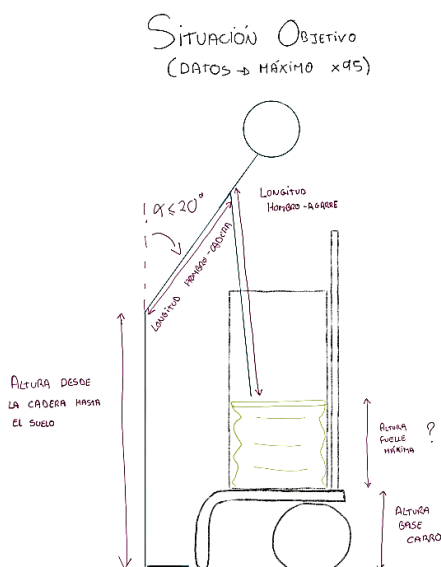 SITUACIÓN OBJETIVO
(DATOS → MÁXIMO x95)
α ≤ 20°
LONGITUD
HOMBRO-AGARRE
LONGITUD HOMBRO-CADERA
ALTURA DESDE
LA CADERA HASTA
EL SUELO
ALTURA
FUELLE
MÁXIMA
?
ALTURA
BASE
CARRO